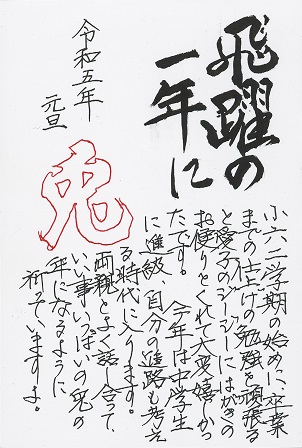 飛躍の
一年に
令和五年
元旦
兎
小六二学期の始めに、卒業
までの仕上げの勉強を頑張る
と愛子のジージーにはがきの
お便りをくれて大変嬉しか
たです。　今年は中学生
に進級、自分の進路も考え
る時代に入ります。
両親とよく話し合って、
いい事いっぱいの兎の
年になるように
祈っていますよ。